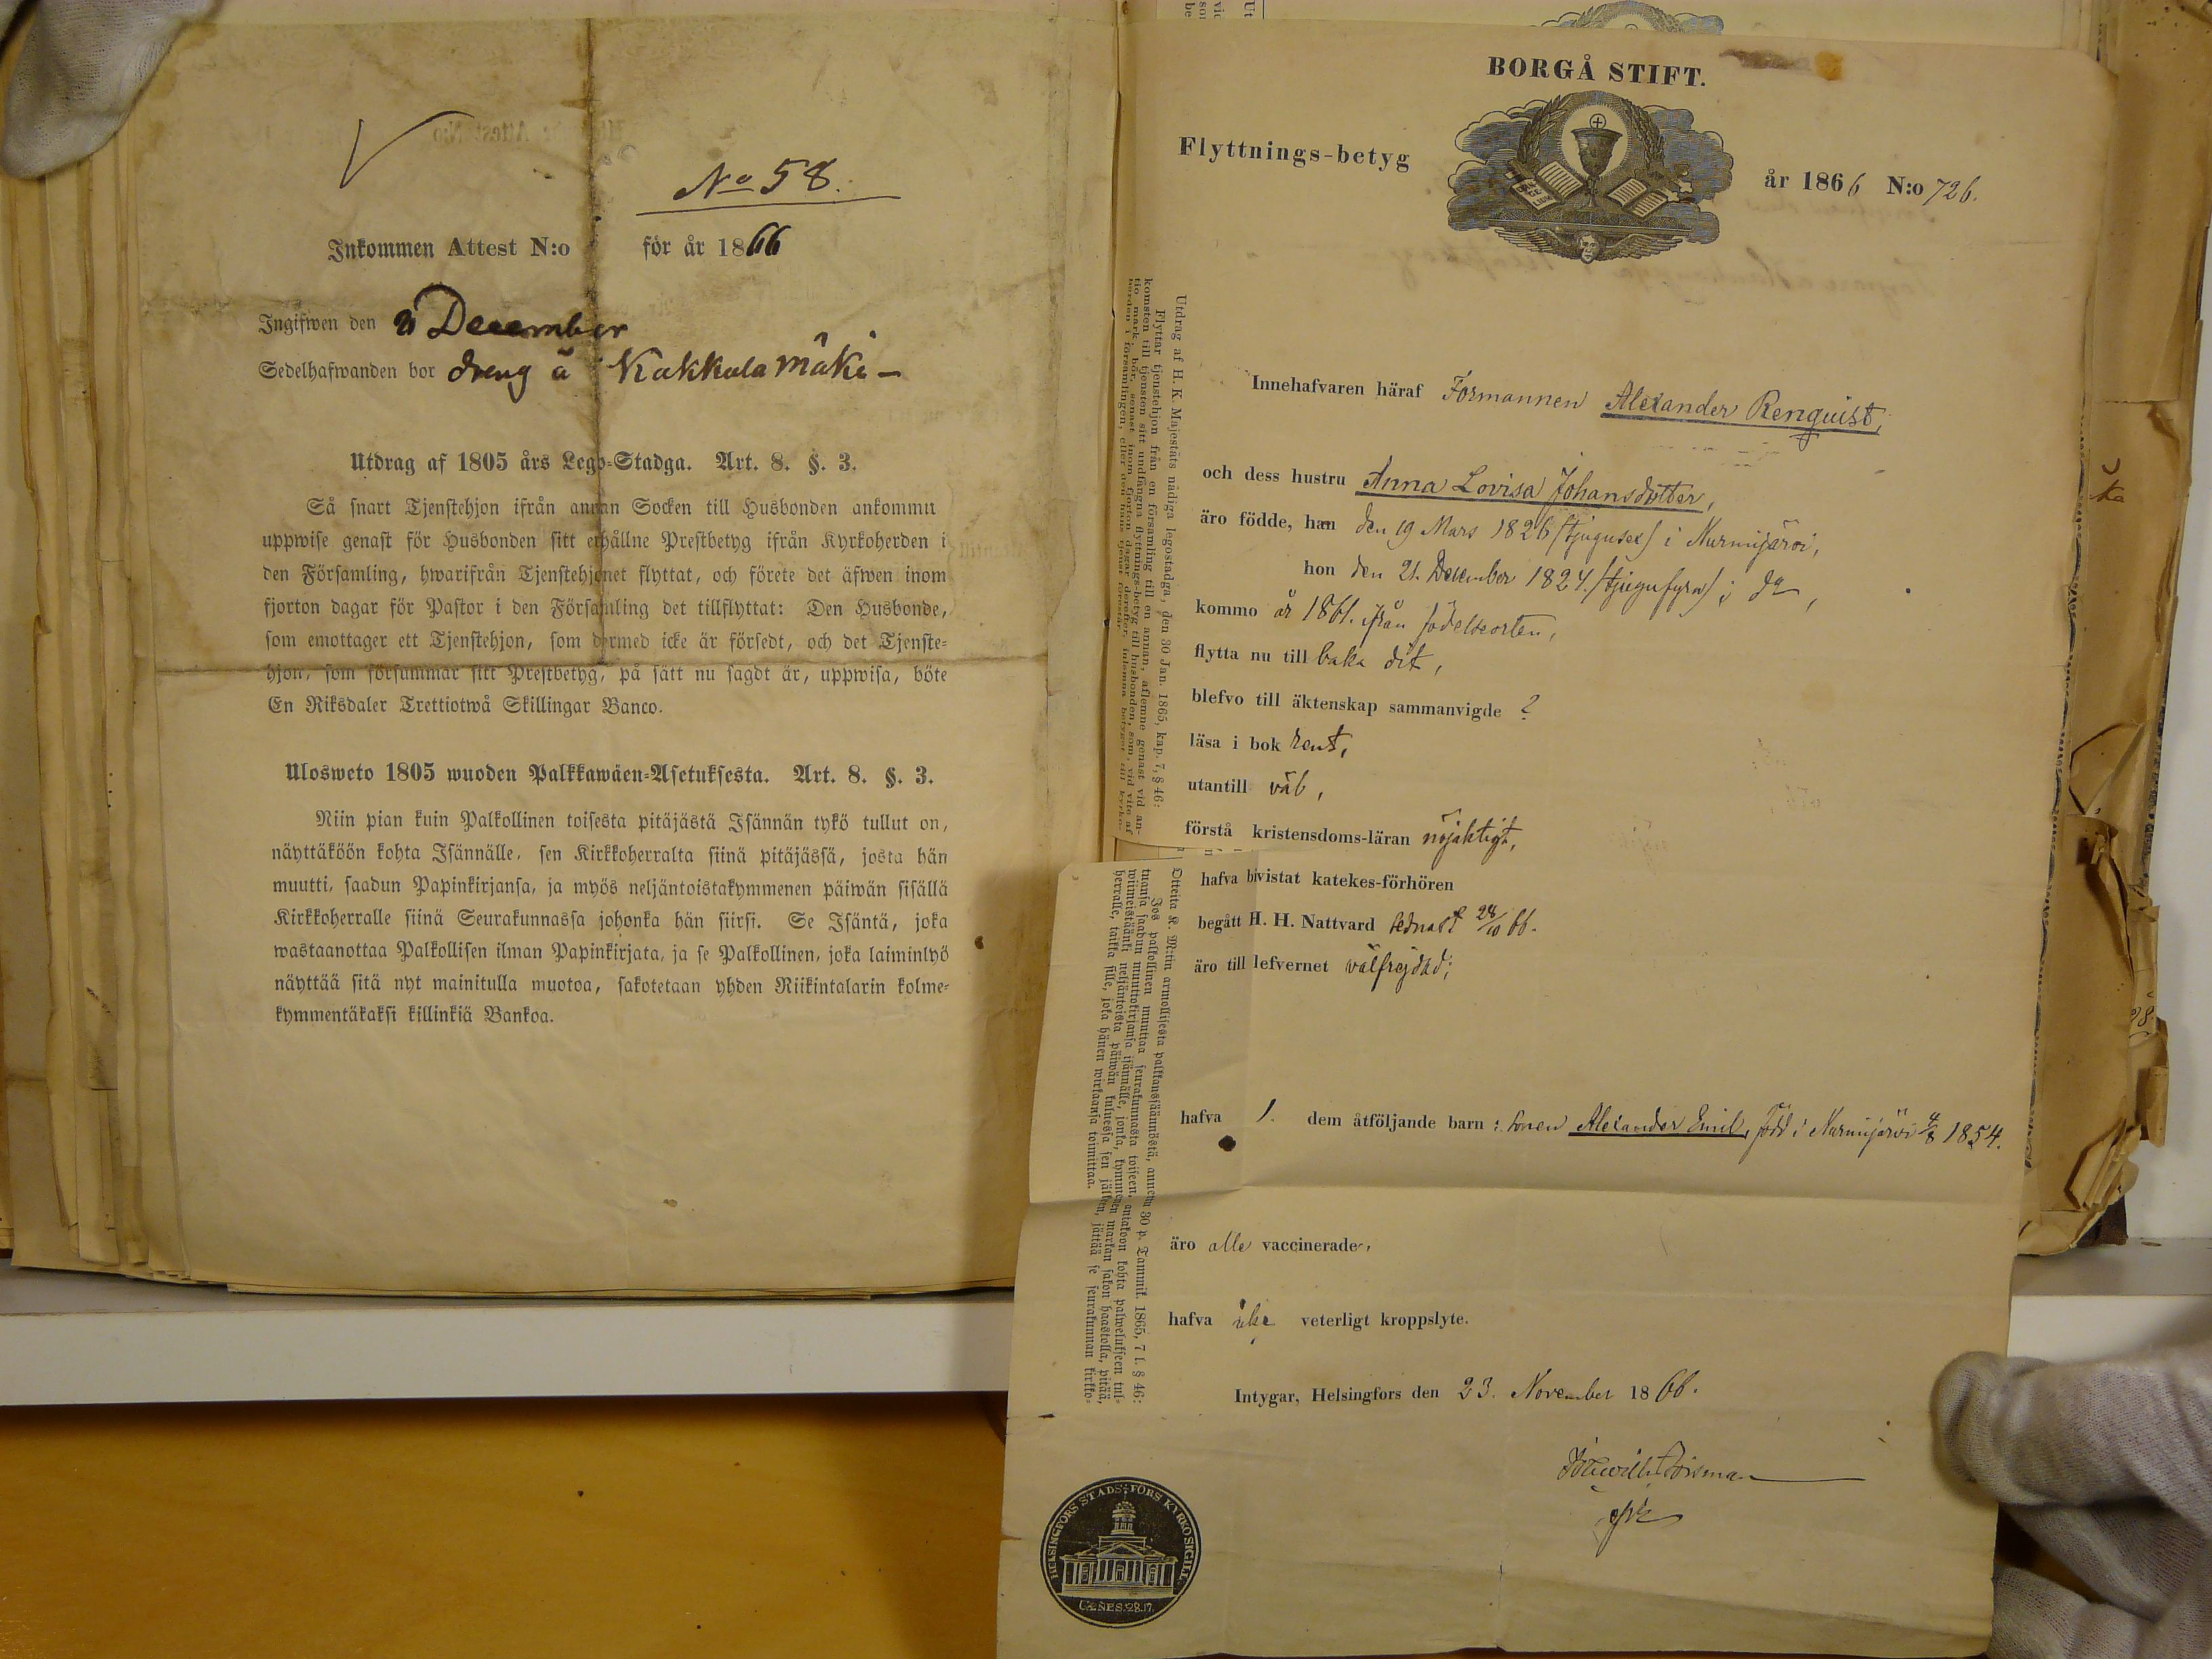 No 58.
Inkommen Attest N:o för år 1866
Ingifwen den 2 December
Sedelhafwanden bor dreng å Kukkula mäki –
Utdrag af 1805 års Lego-Stadga. Art. 8. §. 3.
Så snart Tjenstehjon ifrån annan Socken till Husbonden ankommit
uppwise genast för Husbonden sitt erhållne Prestbetyg ifrån Kyrkoherden i
den Församling, hwarifrån Tjenstehjonet flyttat, och förete det äfwen inom
fjorton dagar för Pastor i den Församling det tillflyttat: Den Husbonde,
som emottager ett Tjenstehjon, som dermed icke är försedt, och det Tjenste-
hjon, som försummar sitt Prestbetyg, på sätt nu sagdt är, uppwisa, böte
En Riksdaler Trettiotwå Skillingar Banco.
Ulosweto 1805 wuoden Palkkawäen-Asetuksesta. Art. 8. §. 3.
Niin pian kuin Palkollinen toisesta pitäjästä Isännän tykö tullut on,
näyttäköön kohta Isännälle, sen Kirkkoherralta siinä pitäjässä, josta hän
muutti, saadun Papinkirjansa, ja myös neljäntoistakymmenen päiwän sisällä
Kirkkoherralle siinä Seurakunnassa johonka hän siirsi. Se Isäntä, joka
wastaanottaa Palkollisen ilman Papinkirjata, ja se Palkollinen, joka laiminlyö
näyttää sitä nyt mainitulla muotoa, sakotetaan yhden Riikintalarin kolme-
kymmentäkaksi killinkiä Bankoa.
BORGÅ STIFT.
Flyttnings-betyg år 1866 N:o 726.
Utdrag af H. K. Majestäts nådiga legostadga, den 30 Jan. 1865, kap. 7, § 46:
Flyttar tjenstehjon från en församling till en annan, aflemne genast vid an-
komsten till tjensten sitt undfångna flyttnings-betyg till husbonden, som, vid vite af
tio mark, bör, senast inom fjorton dagar derefter, inlemna betyget till kyrko-
herden i församlingen, eller den
Innehafvaren häraf Formannen Alexander Renquist,
och dess hustru Anna Lovisa Johansdotter,
äro födde, han den 19 Mars 1826 (tjugusex) i Nurmijärvi,
hon den 21. December 1824. (tjugufyra) i do,
kommo år 1861. från födelseorten,
flytta nu till baka dit,
blefvo till äktenskap sammanvigde ?
läsa i bok rent,
utantill väl,
förstå kristensdoms-läran nöjaktigt,
hafva bivistat katekes-förhören
begått H. H. Nattvard sednast 28/10 66.
äro till lefvernet välfrejdad;
Otteita K. M:tin armollisesta palkkaussäännöstä, annettu 30 p. Tammik. 1865, 7 l. § 46:
Jos palkollinen muuttaa seurakunnasta toiseen, antakoon kohta palwelukseen tul-
tuansa saadun muuttokirjansa isännälle, jonka, kymmenen markan sakon haastolla, pitää,
wiimeistäänki neljäntoista päiwän kuluessa sen jälkeen, jättää se seurakunnan kirkko-
herralle, taikka sille, joka hänen wirkaansa toimittaa.
hafva 1. dem åtföljande barn: sonen Alexander Emil, född i Nurmijärvi 4/8 1854.
äro alle vaccinerade,
hafva icke veterligt kroppslyte.
Intygar, Helsingfors den 23. November 1866.
HELSINGFORS STADS FÖRS KYRKO SIGILL.